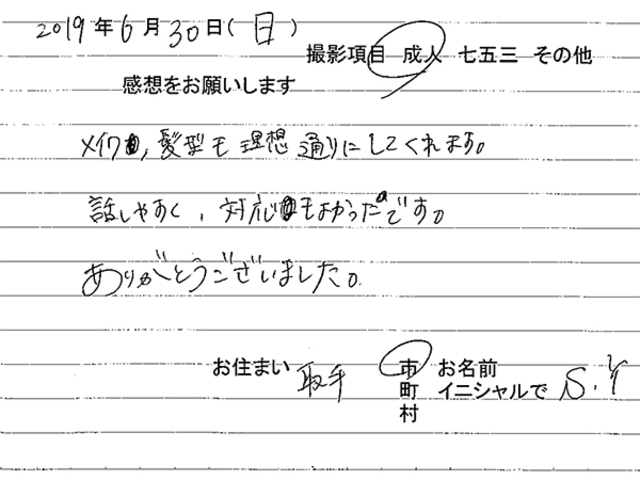 2019年6月30日(日)
撮影項目 成人 七五三 その他
感想をお願いします
メイクも, 髪型も理想通りにしてくれます。
話しやすく、対応もよかったです。
ありがとうございました。
お住まい 取手 市 お名前
町 イニシャルで S.Y
村